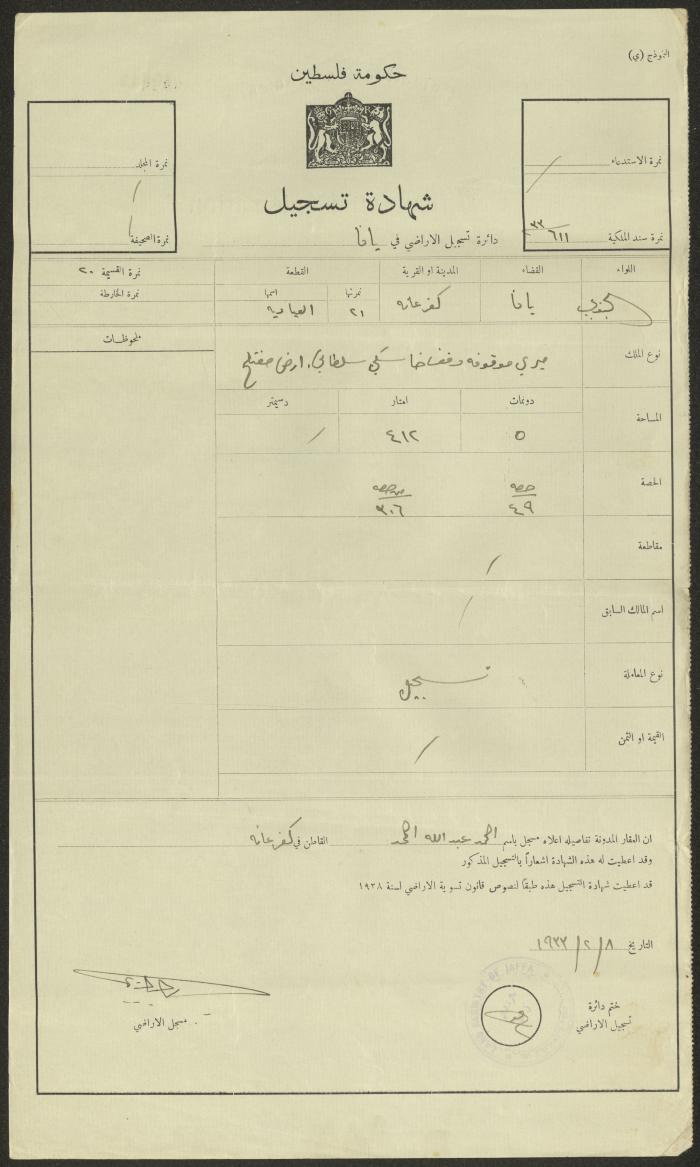 النموذج (ي)
حكومة فلسطين
شهادة تسجيل
دائرة تسجيل الاراضي في يافا
نمرة الاستدعاء /
نمرة سند الملكية ٦١١/٣٣
نمرة المجلد /
نمرة الصحيفة /
اللواء القضاء المدينة او القرية القطعة نمرة القسيمة ٢٠
نمرتها اسمها نمرة الخارطة
الجنوبي يافا كفرعانه ٢١ العياديه
ملحوظات
نوع الملك ميري موقوفه سلطاني. ارض مفتلح
دونمات امتار دسيمتر
المساحة ٥ ٤١٢ /
الحصة حصه ٤٩ ٣٠٦
مقاطعة /
اسم المالك السابق /
نوع المعاملة تسجيل
القيمة او الثمن /
ان العقار المدونة تفاصيله اعلاه مسجل باسم احمد عبد الله احمد القاطن في كفرعانه
وقد اعطيت له هذه الشهادة اشعاراً بالتسجيل المذكور
قد اعطيت شهادة التسجيل هذه طبقاً لنصوص قانون تسوية الاراضي لسنة ١٩٢٨
التاريخ ٨/٢/١٩٣٣
ختم دائرة
تسجيل الاراضي
مسجل الاراضي
OF JAFFA